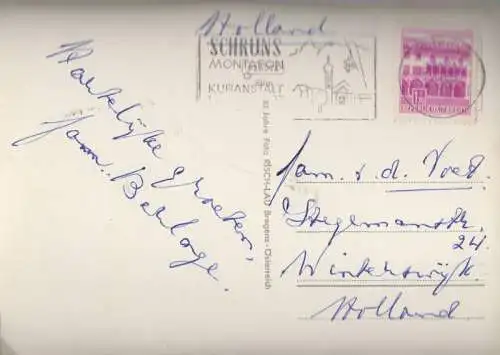 Holland
SCHRUNS
MONTAFON
KURANSTALT
Hartelijke groeten,
fam. Berloge.
32 Jahre Foto RISCH-LAU Bregenz - Österreich
fam. v. d. Voet.
Stegemanstr.
24.
Winterswijk
Holland